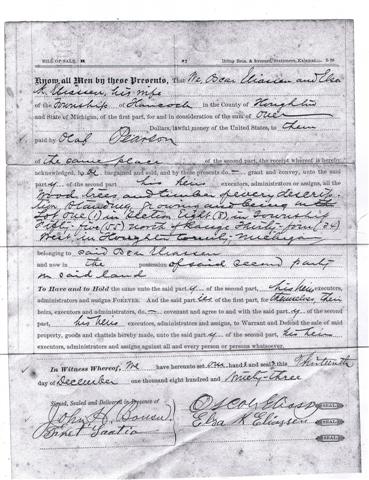 BILL OF SALE.
Know all Men by these Presents, That We, Oscar Eliassen and Elsa
K. Eliassen, his wife
of the Township of Hancock in the County of Houghton
and State of Michigan, of the first part, for and in consideration of the sum of One
Dollars, lawful money of the United States, to them
paid by Olof Pearson
of the same place
of the second part, the receipt whereof is hereby
acknowledged, bargained and sold, and by these presents do grant and convey, unto the said
party of the second part his heirs executors, administrators or assigns, all the
wood, trees and timber of every descrip-
tion, standing, growing and being on the
Lot One (1) in Section Eight (8), in Township
Fifty-five (55) North of Range Thirty-four (34)
West, in Houghton County, Michigan
belonging to said Oscar Eliassen
and now in the possession of said second party
on said land
To Have and to Hold the same unto the said party of the second part, his heirs, executors,
administrators and assigns FOREVER. And the said parties of the first part, for themselves, their
heirs, executors and administrators, do covenant and agree to and with the said party of the second part,
his heirs executors, administrators and assigns, to Warrant and Defend the sale of said
property, goods and chattels hereby made, unto the said party of the second part, his heirs
executors, administrators and assigns against all and every person or persons whatsoever.
In Witness Whereof, We have hereunto set our hands and seals this Thirteenth
day of December one thousand eight hundred and Ninety-three
Signed, Sealed and Delivered in Presence of
John H.
Oscar Eliassen SEAL
Elsa K Eliassen SEAL
SEAL